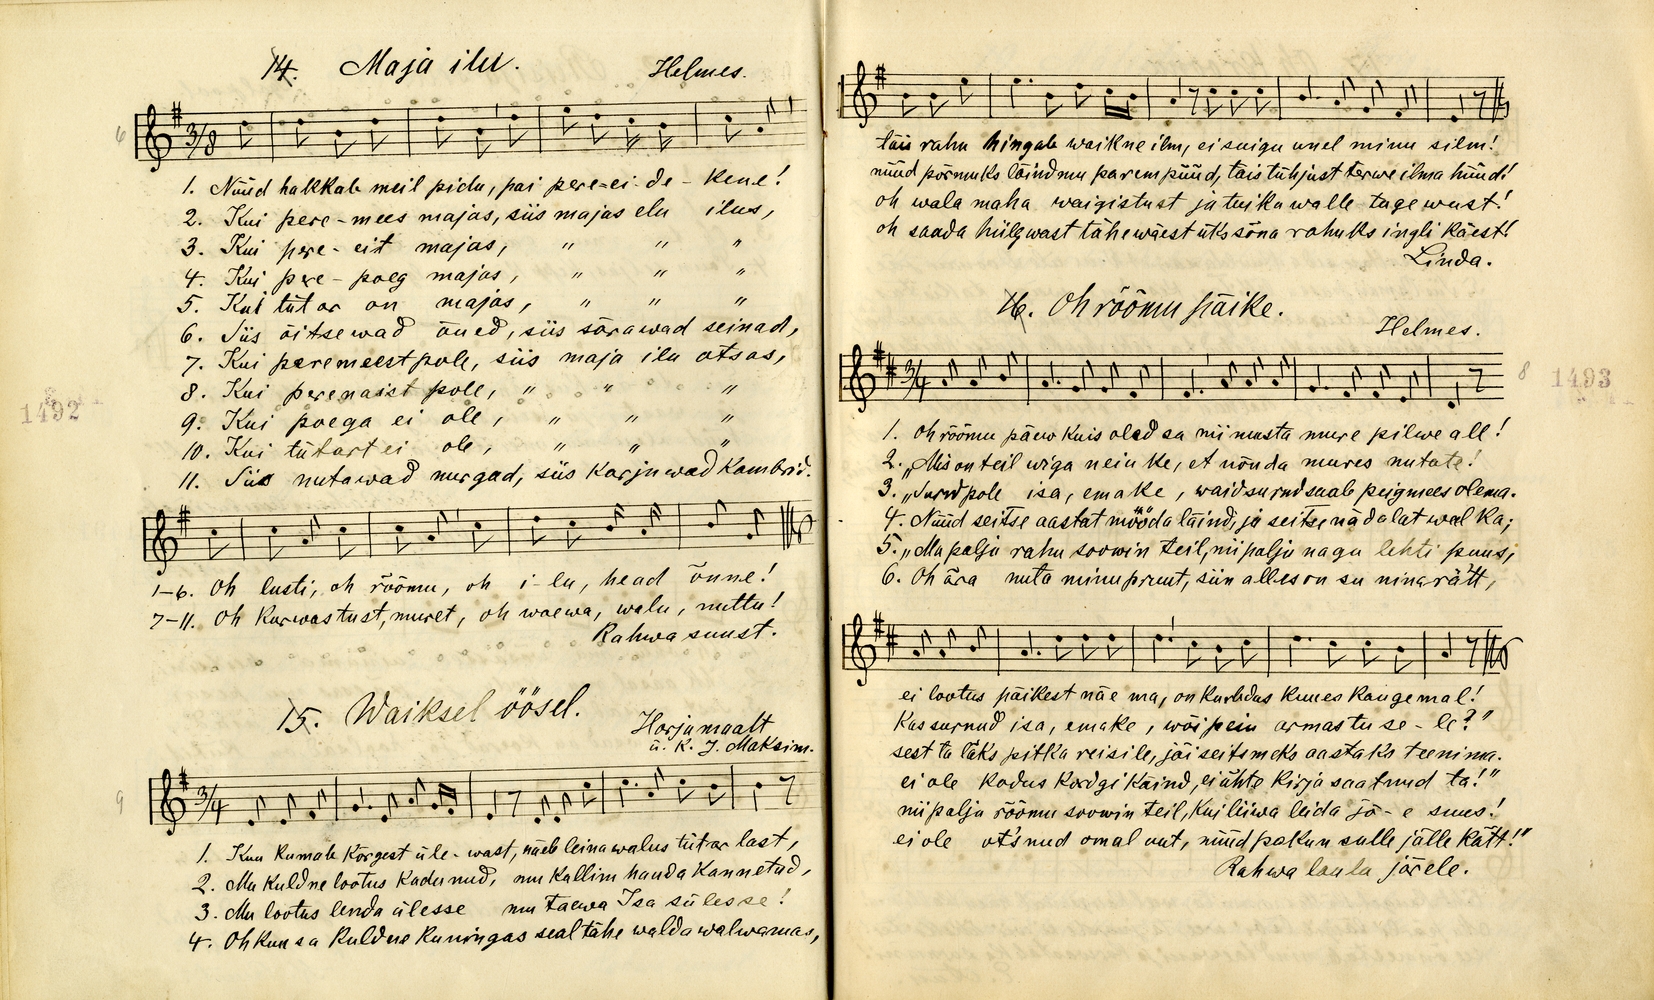 14. Maja ilu.
Helmes.
6
3/8
1. Nüüd hakkab meil pidu, pai pere-ei-de-kene!
2. Kui pere-mees majas, siis majas elu ilus,
3. Kui pere-eit majas, " " "
4. Kui pere-poeg majas, " " "
5. Kui tütar on majas, " " "
6. Siis õitsewad õued, siis särawad seinad,
7. Kui peremeest pole, siis maja ilu otsas,
8. Kui perenaist pole, " " "
9. Kui poega ei ole, " " "
10. Kui tütart ei ole, " " "
11. Siis nutawad nurgad, siis karjuwad kambrid.
1-6. Oh lusti, oh rõõmu, oh i-lu, head õnne!
7-11. Oh kurwastust, muret, oh waewa, walu, nuttu!
Rahwa suust.
1492
15. Waiksel öösel.
Harjumaalt
ü. K. J. Maksim.
9
3/4
1. Kuu kumab kõrgest üle-wast, näeb leinawalus tütar last,
2. Mu kuldne lootus kadunud, mu kallim hauda kannetud,
3. Mu lootus lenda ülesse mu taewa Isa sülesse!
4. Oh kuu sa kuldne kuningas seal tähe walda walwamas,
täis rahu hingab waikne ilm, ei suigu unel minu silm!
nüüd põrmuks läind mu parem püüd, täis tühjust terwe ilma hüüd!
oh wala maha waigistust ja tuikawalle tagewust!
oh saada hiilgwast tähewäest üks sõna rahuks ingli käest!
Linda.
16. Oh rõõmu päike.
Helmes.
3/4
8
1493
1. Oh rõõmu päew kuis oled sa nii musta mure pilwe all!
2. „Mis on teil wiga neiuke, et nõnda mures nutate!
3. „Surnd pole isa, emake, waid surnd saab peigmees olema.
4. Nüüd seitse aastat mööda läind, ja seitse nädalat weel ka;
5. „Ma palju rahu soowin teil, nii palju nagu lehti puus,
6. Oh ära nuta minu pruut, siin alles on su ninarätt,
ei lootus päikest näe ma, on kurbdus kuues kaugemal!
Kas surnud isa, emake, wõi pein armastuse-le?"
sest ta läks pitka reisile, jäi seitsmeks aastaks teenima.
ei ole kodus kordgi käind, ei ühte kirja saatnud ta!"
nii palju rõõmu soowin teil, kui liiwa leida jõ-e suus!
ei ole ots'nud omal uut, nüüd pakun sulle jälle kätt!"
Rahwa laulu järele.